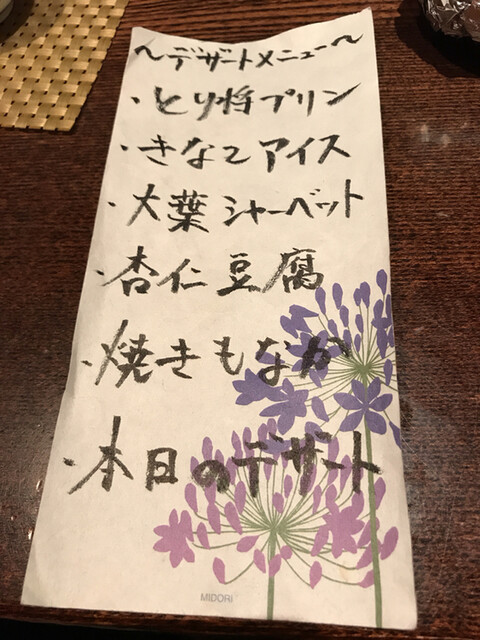 ～デザートメニュー～
・とり将プリン
・きなこアイス
・大葉シャーベット
・杏仁豆腐
・焼きもなか
・本日のデザート
MIDORI